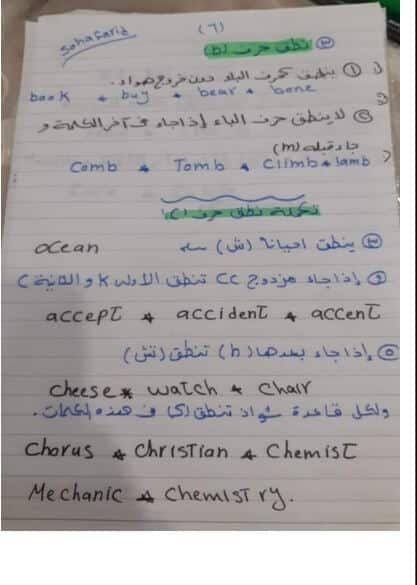 (٦)
Sohafarid
③ نطق حرف (b)
① ينطق كحرف الباء دون خروج هواء.
book * buy * bear * bone
② لا ينطق حرف الباء إذا جاء فى آخر الكلمة و
جاء قبله (m)
Comb * Tomb * Climb * lamb
تكملة نطق حرف (C)
③ ينطق احياناً (ش)
ocean
④ إذا جاء مزدوج CC تنطق الأولى K و الثانية C
accept * accident * accent
⑤ إذا جاء بعدها (h) تنطق (تش)
cheese * watch * Chair
ولكل قاعدة شواذ تنطق (ك) فى هذه الكلمات.
Chorus * Christian * Chemist
Mechanic * Chemistry.